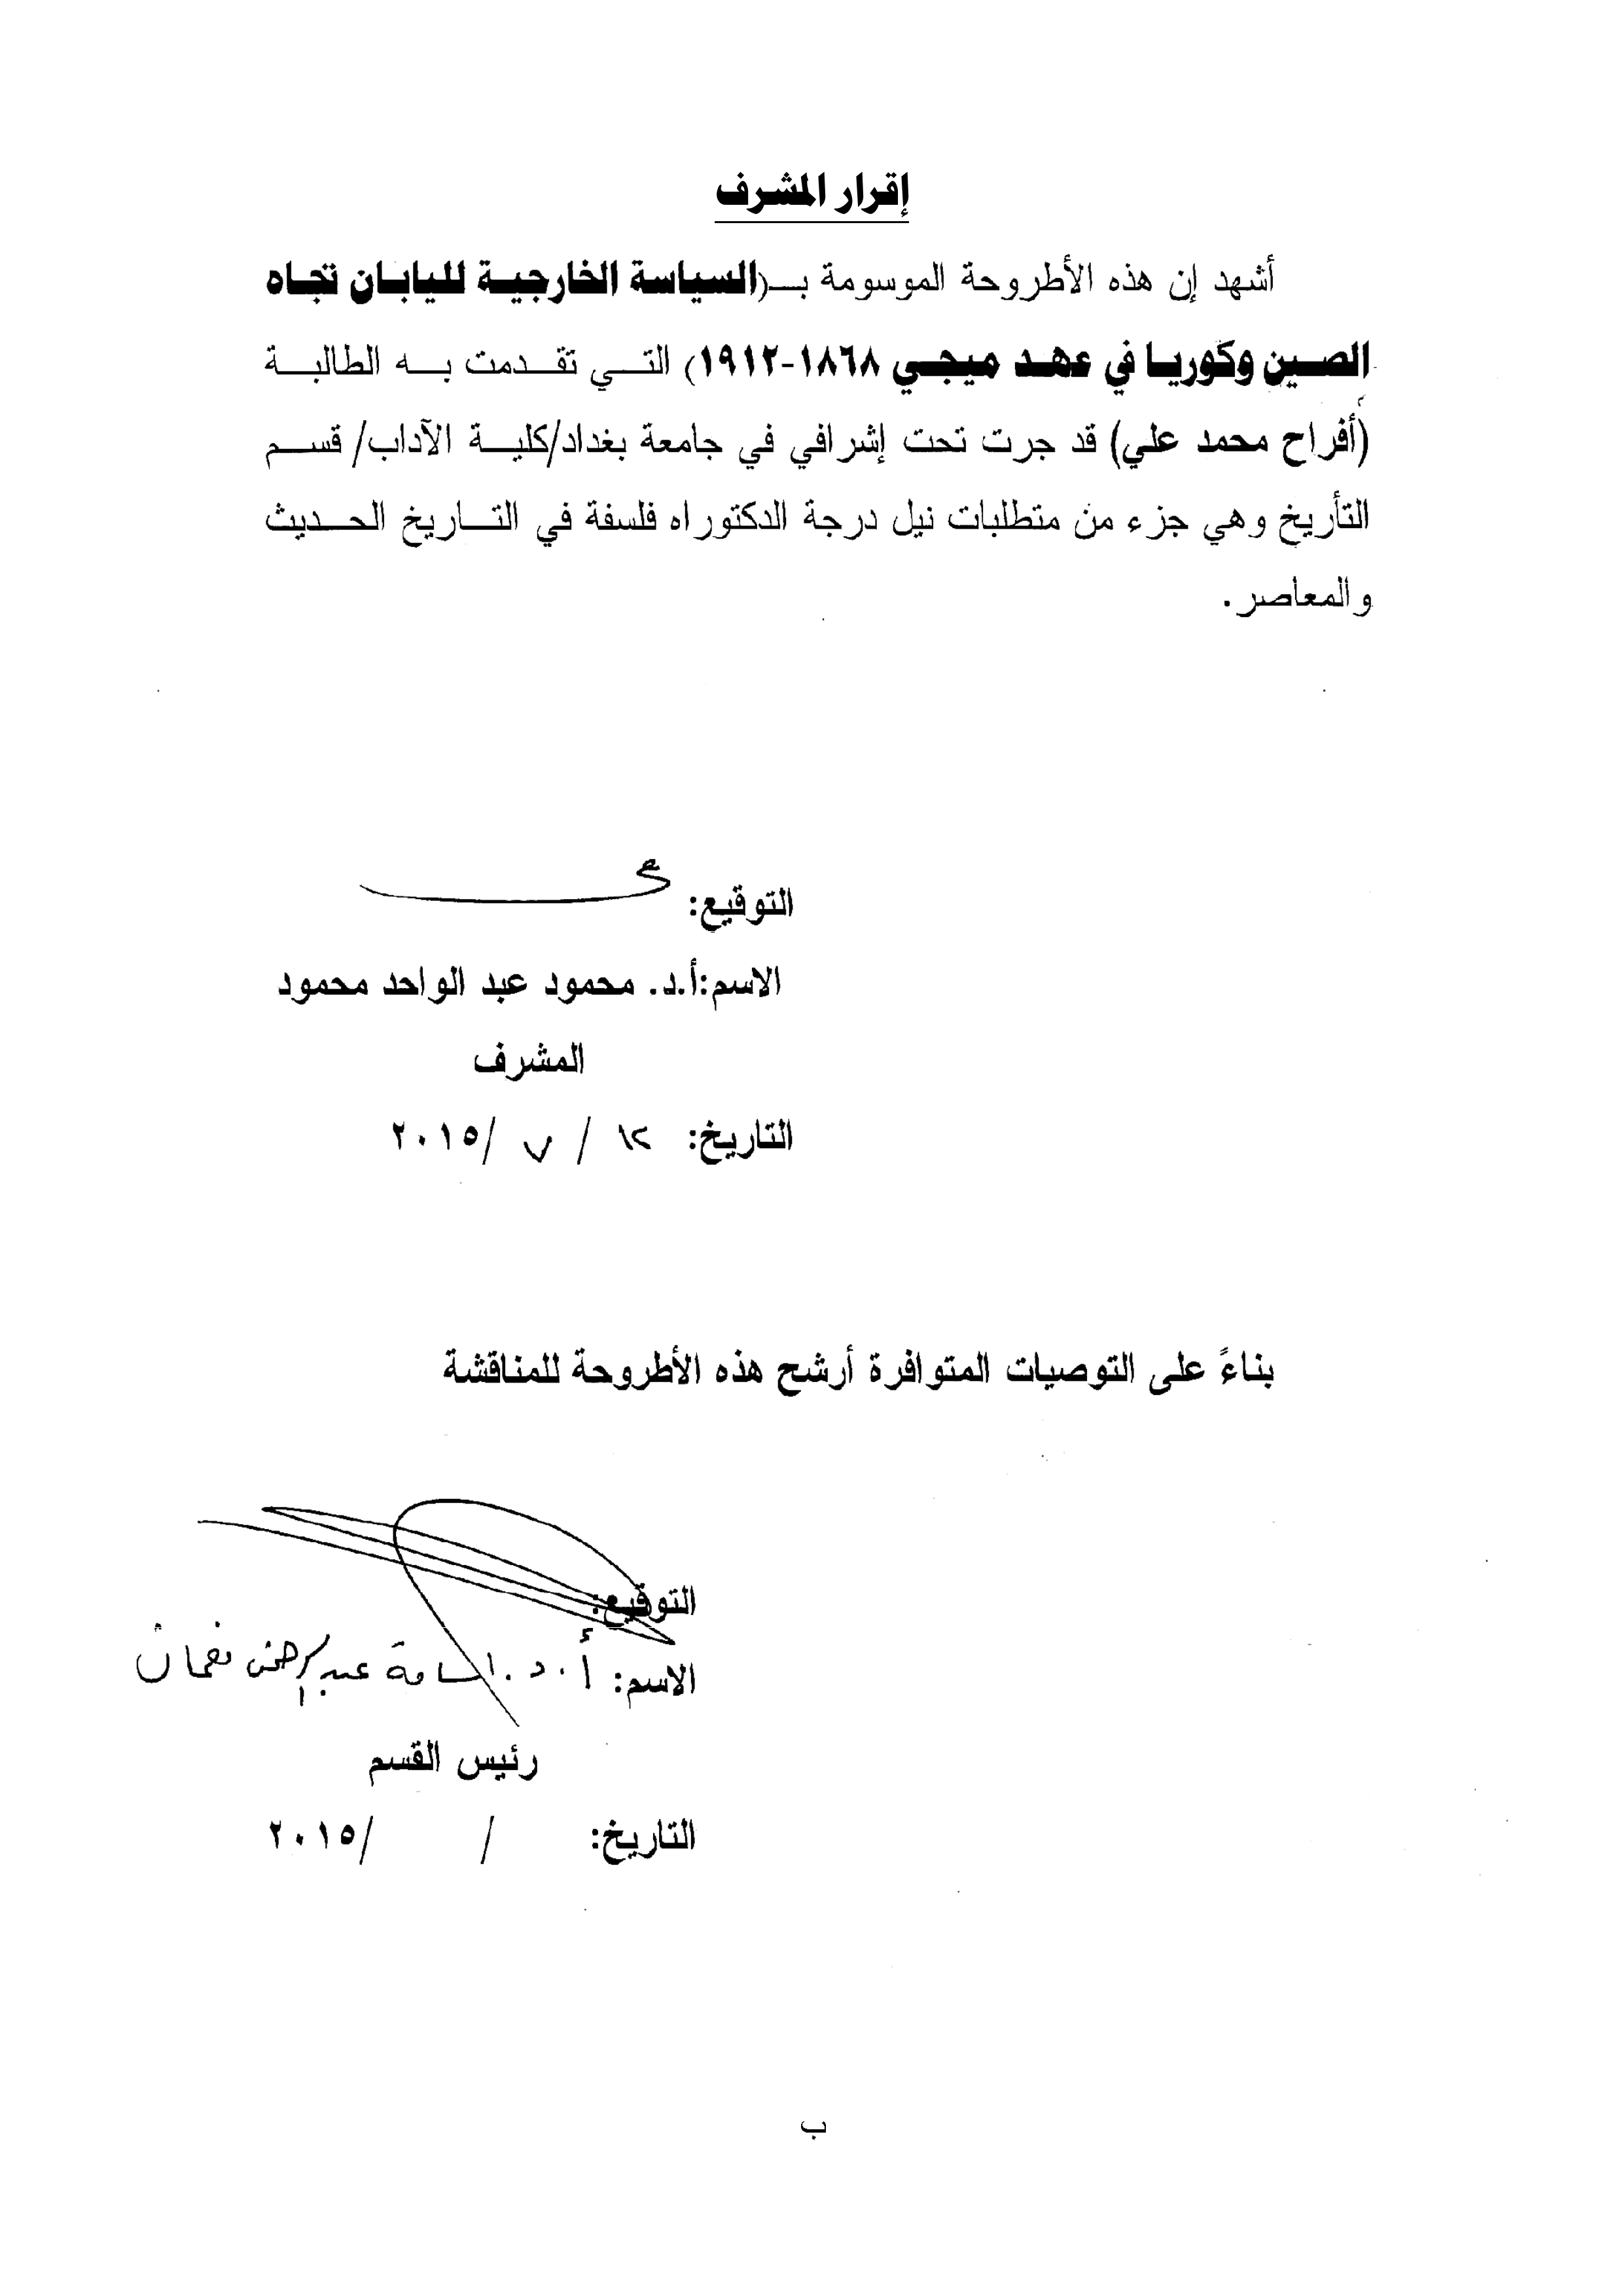 إقرار المشرف
أشهد إن هذه الأطروحة الموسومة بـ(السياسة الخارجية لليابان تجاه
الصين وكوريا في عهد ميجي ١٨٦٨-١٩١٢) التي تقدمت به الطالبة
(أفراح محمد علي) قد جرت تحت إشرافي في جامعة بغداد/كلية الآداب/ قسم
التأريخ وهي جزء من متطلبات نيل درجة الدكتوراه فلسفة في التاريخ الحديث
والمعاصر.
التوقيع:
الاسم:أ.د. محمود عبد الواحد محمود
المشرف
التاريخ: ١٢ / ٧ /٢٠١٥
بناءً على التوصيات المتوافرة أرشح هذه الأطروحة للمناقشة
التوقيع:
الاسم: أ.د. اسامة عبد الرحمن نعمان
رئيس القسم
التاريخ: / /٢٠١٥
ب